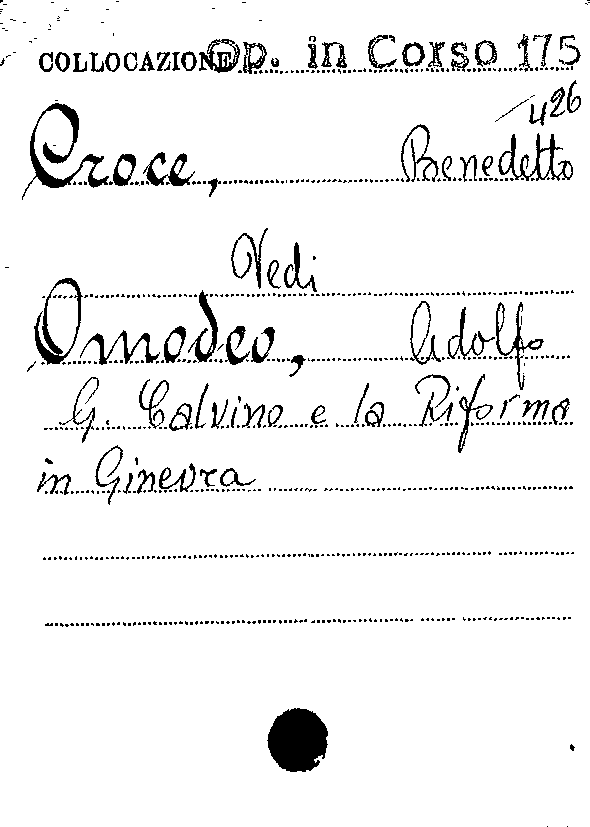 COLLOCAZIONE Op. in Corso 175
426
Croce, Benedetto
Vedi
Omodeo, Adolfo
G. Calvino e la Riforma
in Ginevra